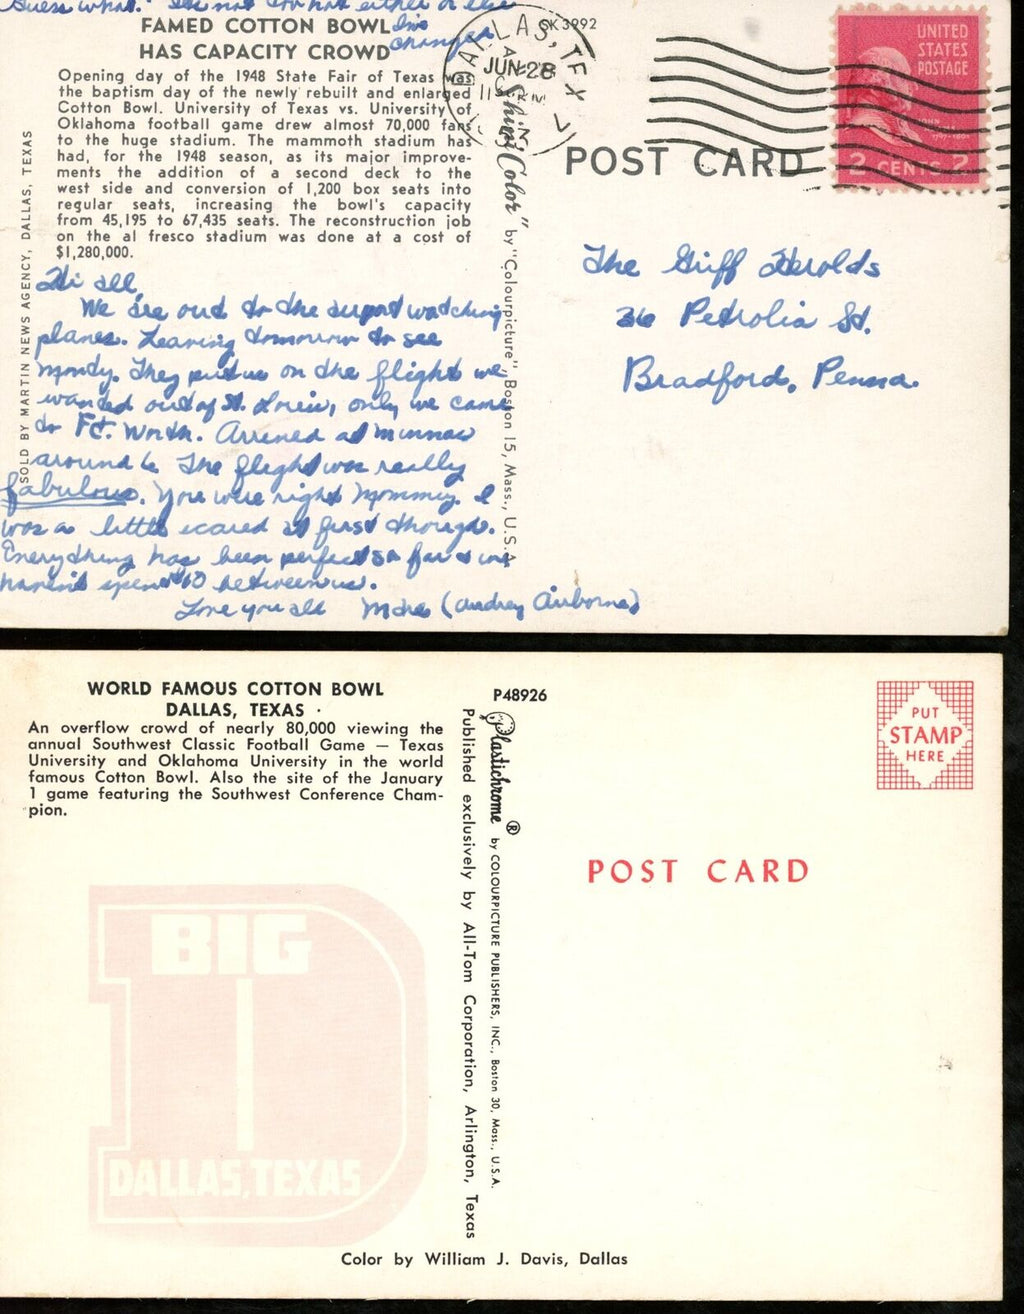 Guess what. It's not too hot either or else
I've
changed
FAMED COTTON BOWL
HAS CAPACITY CROWD
Opening day of the 1948 State Fair of Texas was
the baptism day of the newly rebuilt and enlarged
Cotton Bowl. University of Texas vs. University of
Oklahoma football game drew almost 70,000 fans
to the huge stadium. The mammoth stadium has
had, for the 1948 season, as its major improve-
ments the addition of a second deck to the
west side and conversion of 1,200 box seats into
regular seats, increasing the bowl's capacity
from 45,195 to 67,435 seats. The reconstruction job
on the al fresco stadium was done at a cost of
$1,280,000.
SOLD BY MARTIN NEWS AGENCY, DALLAS, TEXAS
Hi all,
We are out to the airport watching
planes. Leaving tomorrow to see
Monty. They put us on the flight we
wanted out of St. Louis, only we came
to Ft. Worth. Arrived at
around 6. The flight was really
fabulous. You were right Mommy. I
was a little scared at first though.
Everything has been perfect so far & we
haven't spent $10 between us.
Love you all (Audrey Airborne)
SK3992
DALLAS, TEX
JUN 28
A
"Shini Color"
by "Colourpicture", Boston 15, Mass., U.S.A.
UNITED
STATES
POSTAGE
JOHN
2 CENTS 2
POST CARD
The Griff Herolds
36 Petrolia St.
Bradford, Penna.
WORLD FAMOUS COTTON BOWL
DALLAS, TEXAS
An overflow crowd of nearly 80,000 viewing the
annual Southwest Classic Football Game — Texas
University and Oklahoma University in the world
famous Cotton Bowl. Also the site of the January
1 game featuring the Southwest Conference Cham-
pion.
BIG
D
DALLAS, TEXAS
P48926
Plastichrome ® by COLOURPICTURE PUBLISHERS, INC., Boston 30, Mass., U.S.A.
Published exclusively by All-Tom Corporation, Arlington, Texas
PUT
STAMP
HERE
POST CARD
Color by William J. Davis, Dallas